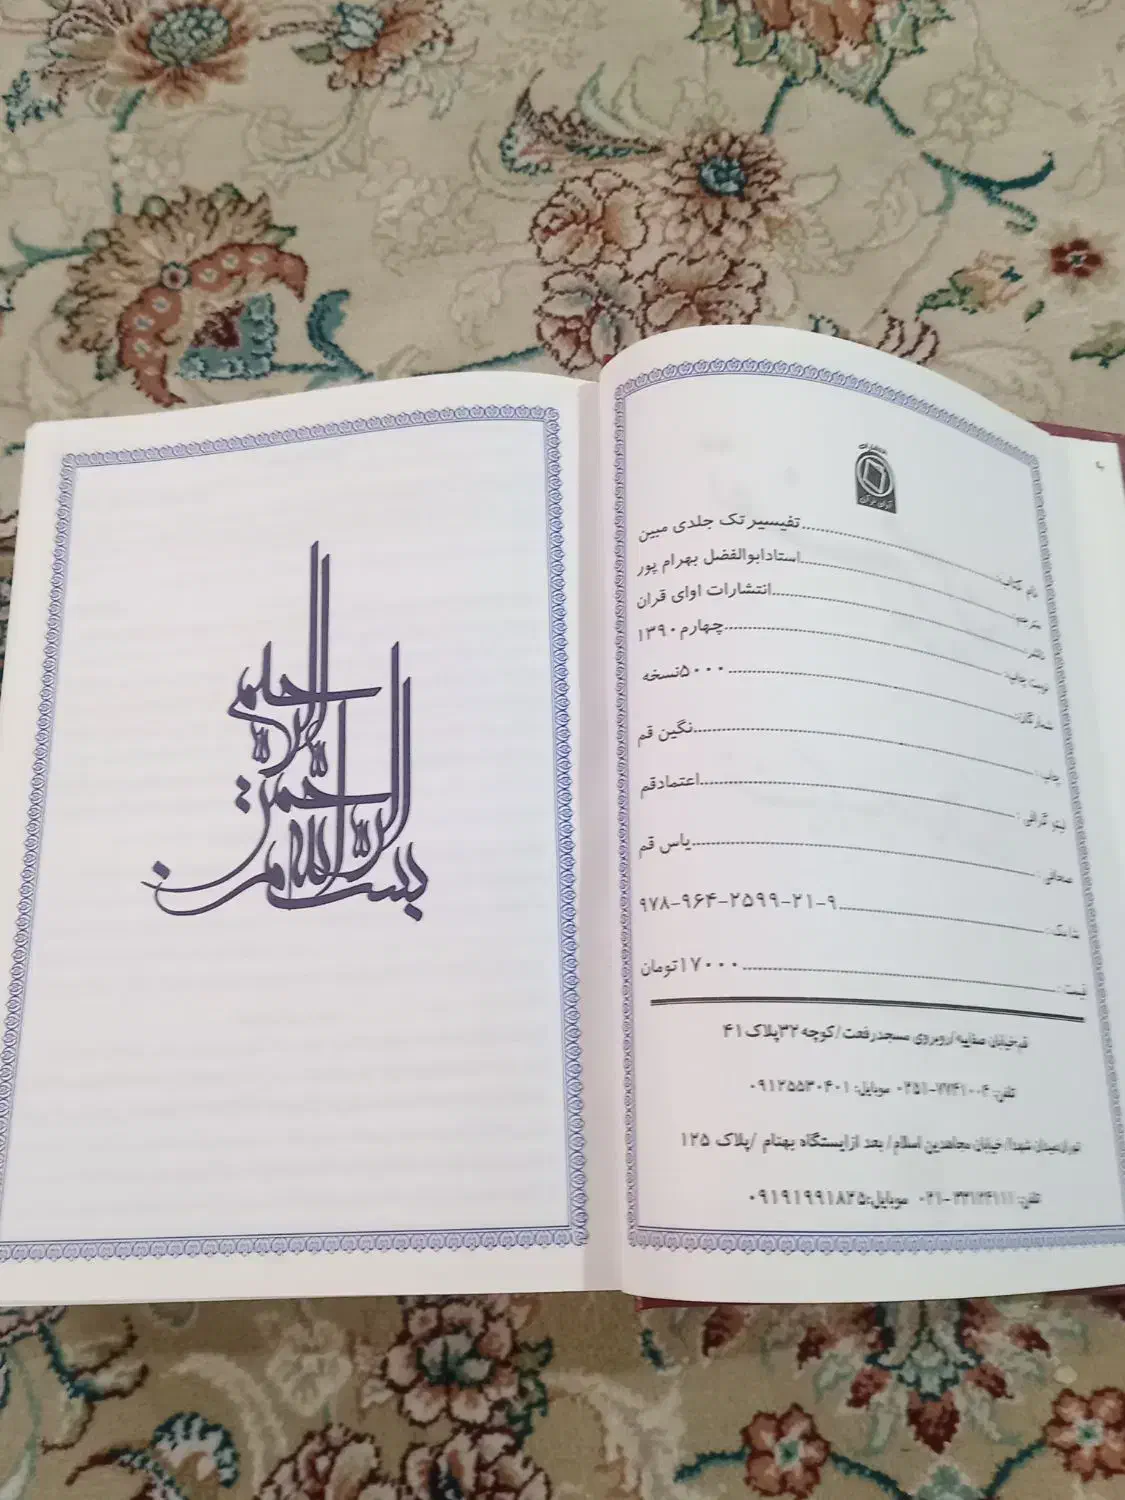 انتشارات
آوای قرآن
نام کتاب: تفیسیر تک جلدی مبین
مترجم: استادابوالفضل بهرام پور
ناشر: انتشارات اوای قران
نوبت چاپ: چهارم ۱۳۹۰
شمارگان: ۵۰۰۰نسخه
چاپ: نگین قم
لیتو گرافی: اعتمادقم
صحافی: یاس قم
شابک: ۹۷۸-۹۶۴-۲۵۹۹-۲۱-۹
قیمت: ۱۷۰۰۰تومان
قم خیابان صفاییه/روبروی مسجدرفعت/کوچه ۳۲پلاک ۴۱
تلفن: ۷۷۴۱۰۰۴-۰۲۵۱ موبایل: ۰۹۱۲۵۵۳۰۴۰۱
تهران:میدان شهدا/خیابان مجاهدین اسلام/ بعد ازایستگاه بهنام /پلاک ۱۲۵
تلفن: ۳۳۱۲۴۱۱۱-۰۲۱ موبایل:۰۹۱۹۱۹۹۱۸۲۵
بسم الله الرحمن الرحیم